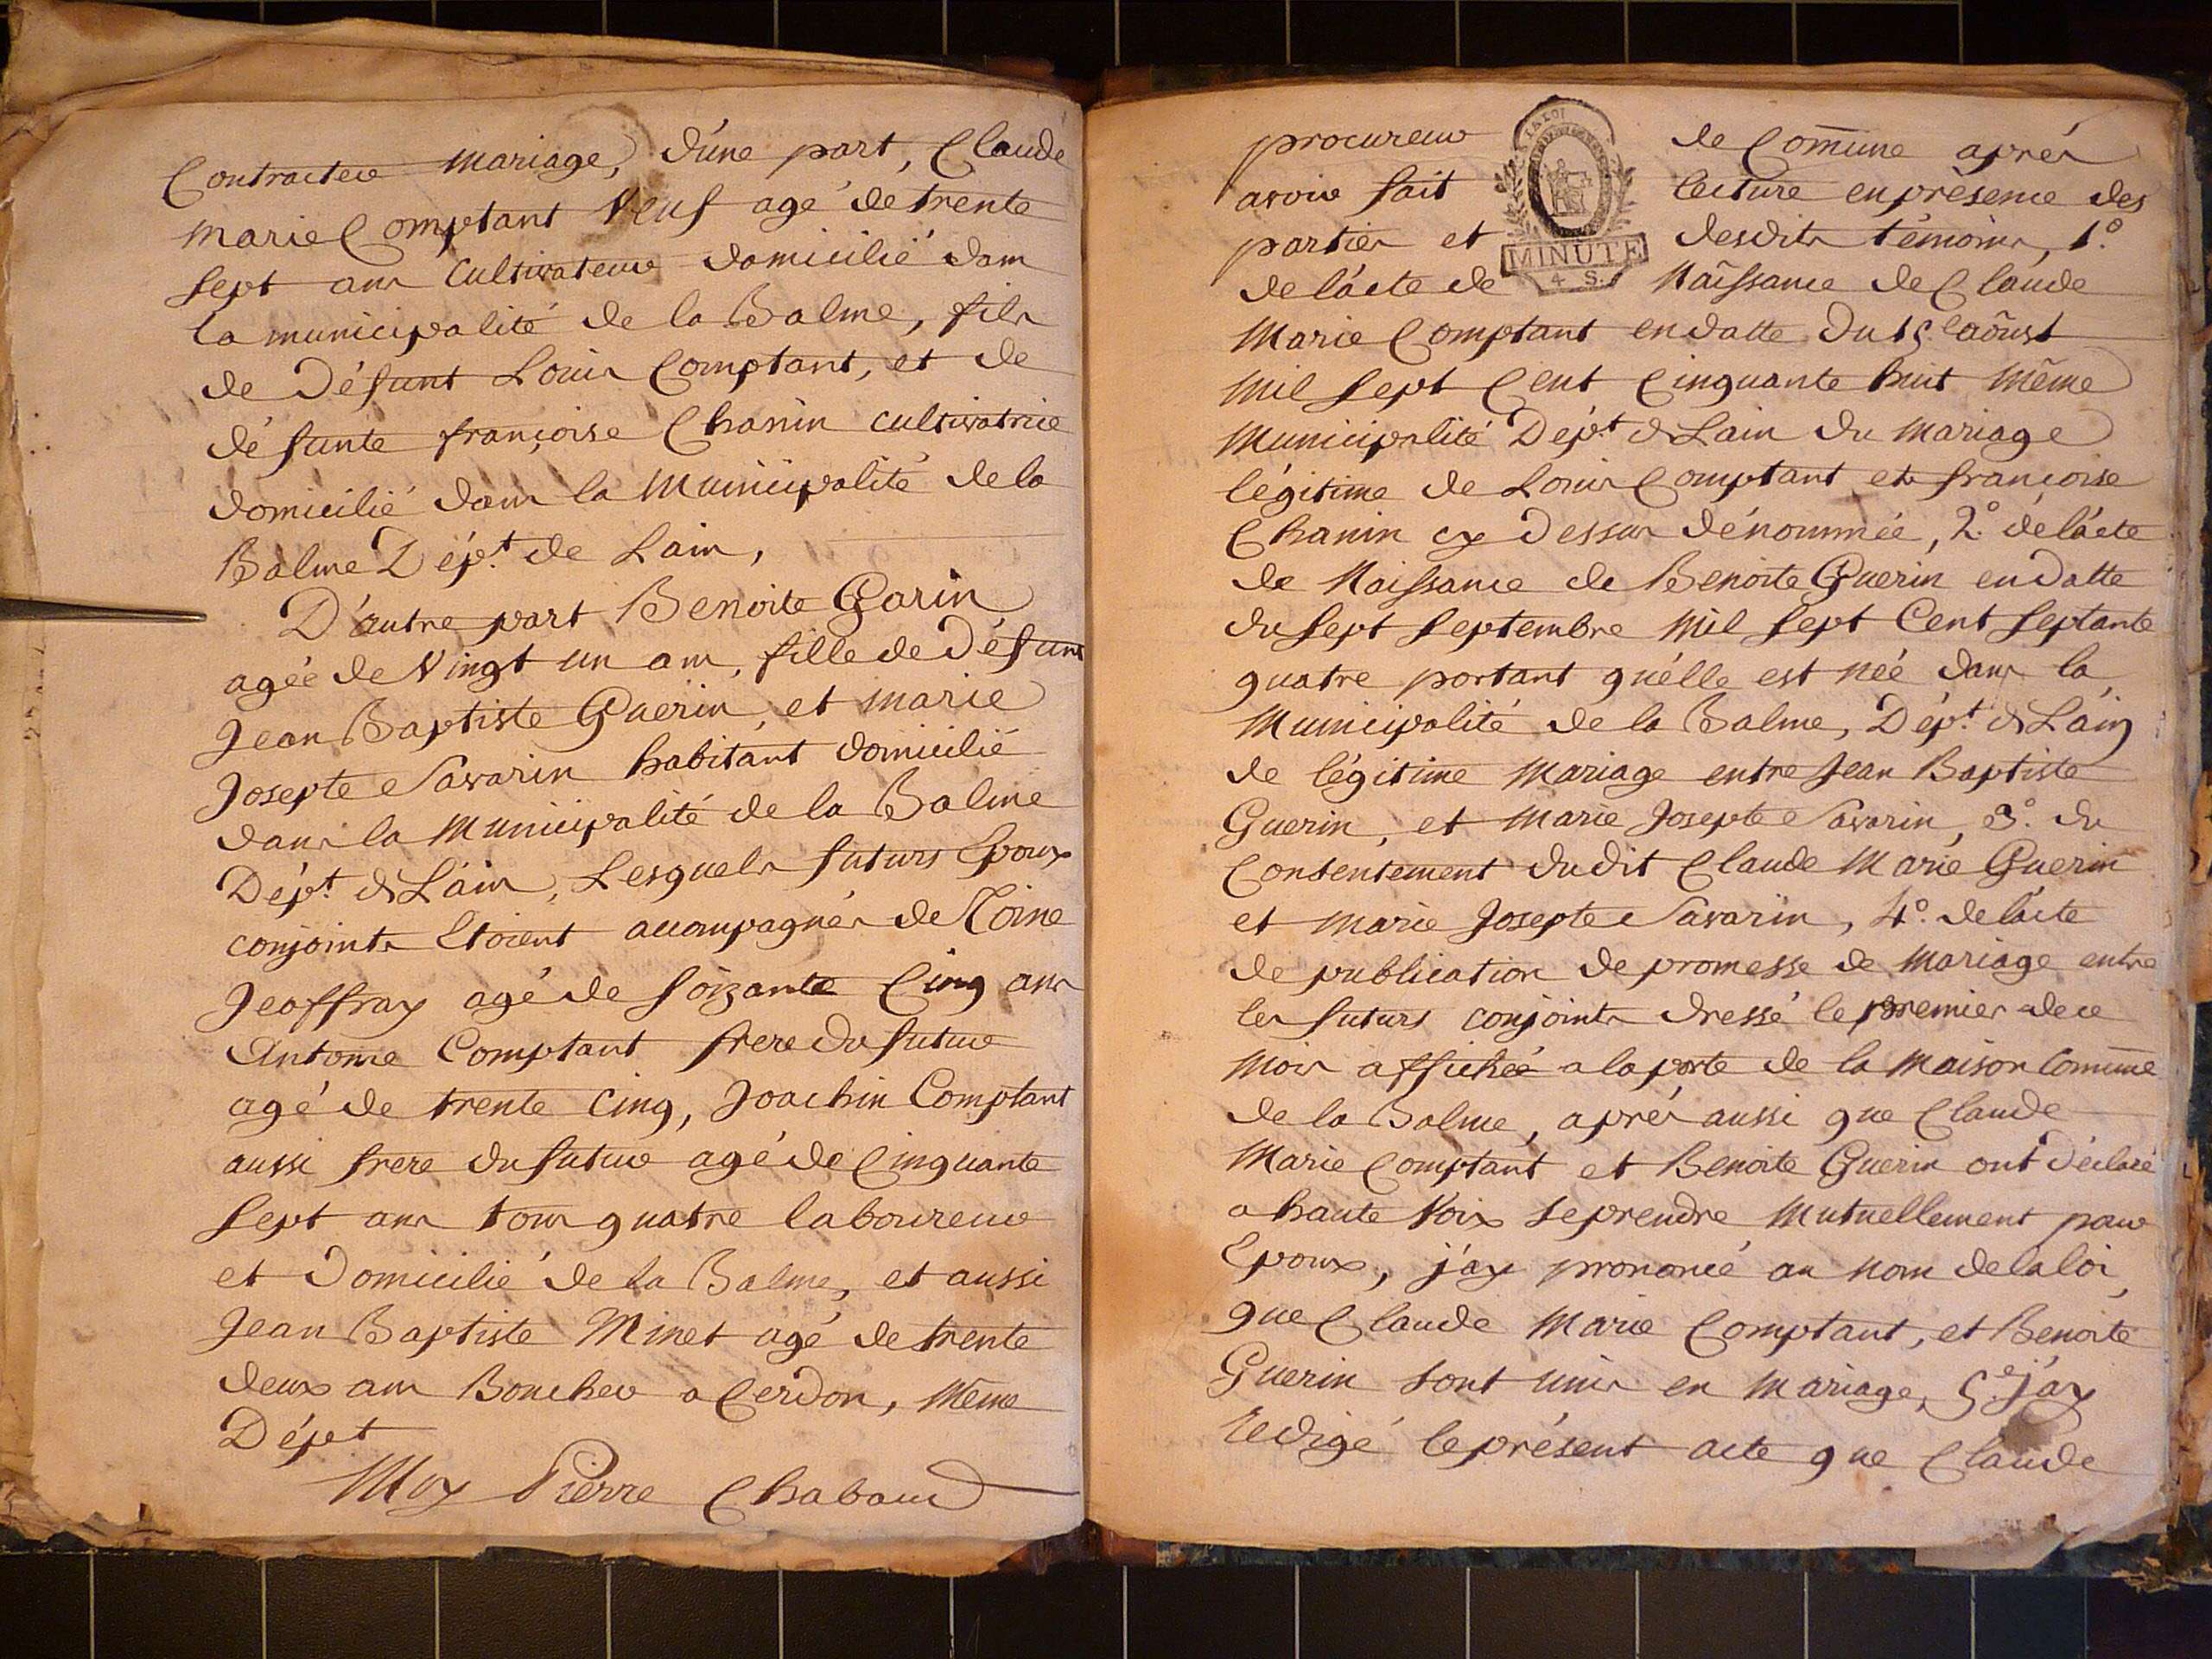 Contracter mariage, d'une part, Claude
marie Comptant Veuf agé dé trente
sept ans Cultivateur domicilié dans
la municipalité de la Balme, fils
de Défunt Louis Comptant, et de
défunte françoise Chanin cultivatrice
domicilié dans la Municipalité de la
Balme Dépt. de Lain,
D'autre part Benoite Garin
agée de Vingt un ans, fille de Défunt
Jean Baptiste Guerin, et marie
Josepte Savarin habitant domicilié
dans la Municipalité de la Balme
Dépt. de Lain, Lesquels futurs Epoux
conjoints Etoient accompagnés de Toine
Jeoffray agé de soizante Cinq ans
Antoine Comptant frere du futur
agé de trente Cinq, Joachin Comptant
aussi frere du futur agé de Cinquante
sept ans tous quatre laboureur
et Domicilié de la Balme, et aussi
Jean Baptiste Minet agé de trente
deux ans Boucher a Cerdon, Même
Dépt
Moy Pierre Chabaud
procureur de Comune aprés
avoir fait lecture en présence des
parties et desdits témoins, 1.°
de l'acte de Naissance de Claude
MINUTE
4 S.
Marie Comptant en datte du 15. aoust
Mil Sept Cent Cinquante huit Même
Municipalité Dépt. de Lain du Mariage
légitime de Louis Comptant et françoise
Chanin cy Dessus dénommée, 2.° de l'acte
de Naissance de Benoite Guerin en datte
du sept septembre Mil sept Cent septante
quatre portant qu'élle est née dans la
Municipalité de la Balme, Dépt. de Lain
de légitime Mariage entre Jean Baptiste
Guerin, et Marie Josepte Savarin, 3.° du
Consentement dudit Claude Marie Guerin
et Marie Josepte Savarin, 4.° de l'acte
de publication de promesse de Mariage entre
les futurs conjoints dressé le premier de ce
Mois affichée a la porte de la Maison Comune
de la Balme, aprés aussi que Claude
Marie Comptant et Benoite Guerin ont déclaré
a haute Voix se prendre Mutuellement pour
Epoux, j'ay prononcé au nom de la loi,
que Claude Marie Comptant, et Benoite
Guerin sont unis en Mariage, 5.° j'ay
redigé le présent acte que Claude